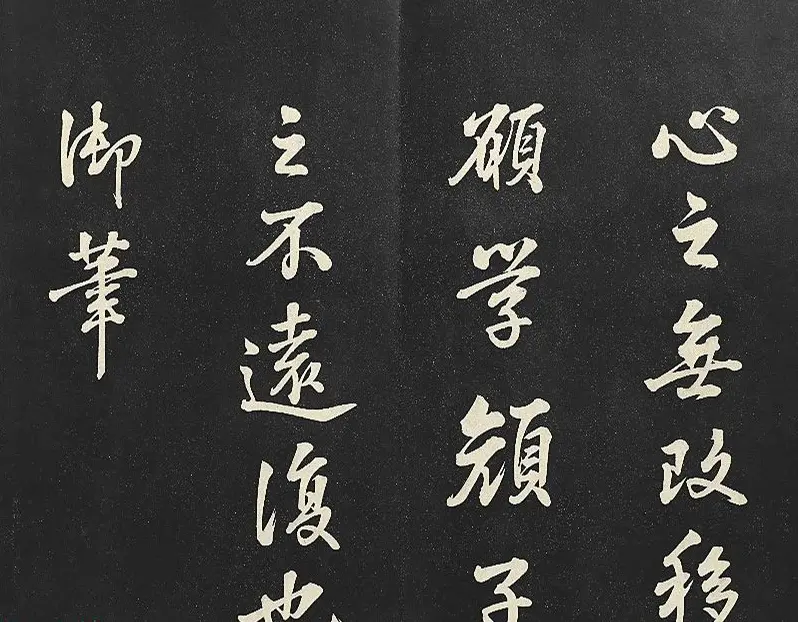 心之無改移
願学顔子
之不遠復也
御筆